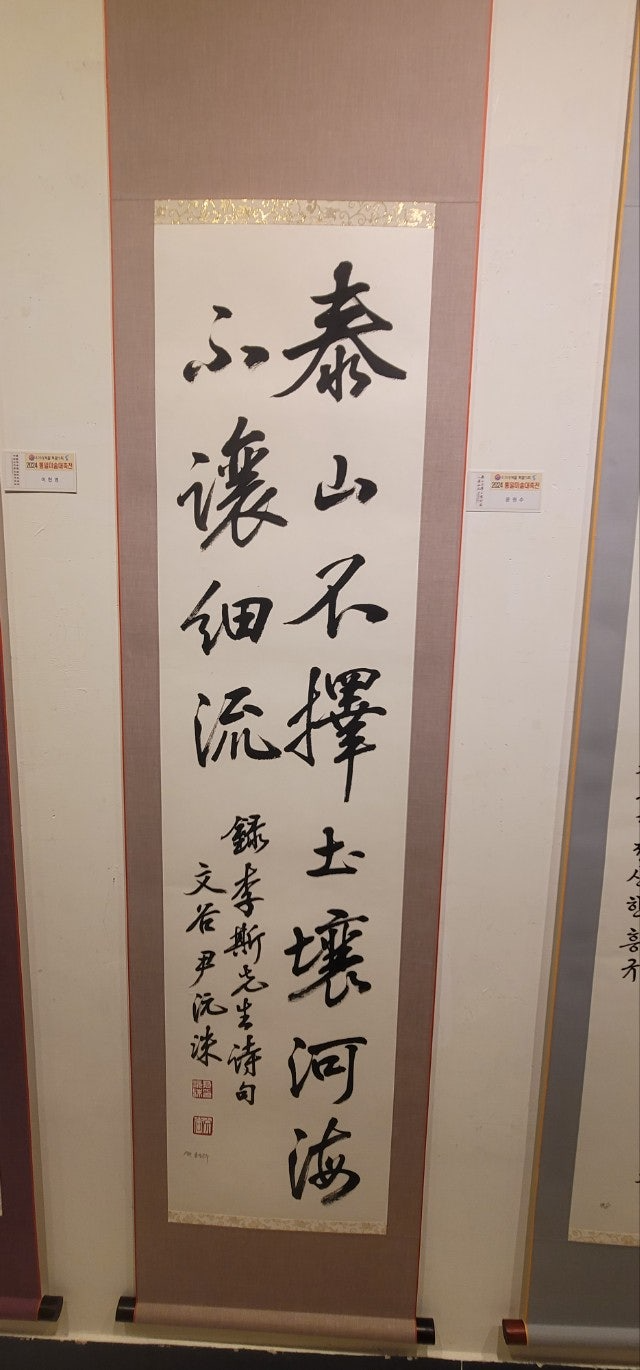 泰山不擇土壤河海
不讓細流
錄李斯先生詩句
文谷尹沅洙
2024 통일미술대축전
2024 통일미술대축전
윤원수